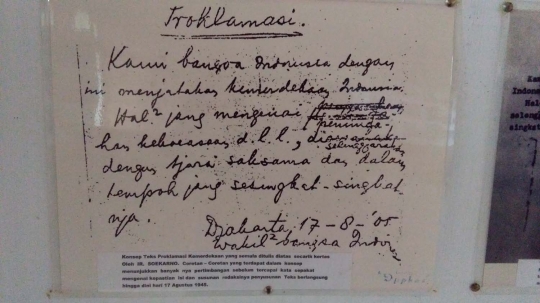 Proklamasi.
Kami bangsa Indonesia dengan
ini menjatakan kemerdekaan Indonesia.
Hal² jang mengenai
peminda-
han kekoeasaan d.l.l.,
diselenggarakan
dengan tjara saksama dan dalam
tempoh jang sesingkat-singkat-
nja.
Djakarta, 17-8-'05
Wakil² bangsa Indon
Konsep Teks Proklamasi Kemerdekaan yang semula ditulis diatas secarik kertas
Oleh IR. SOEKARNO. Coretan - Coretan yang terdapat dalam konsep
menunjukkan banyak nya pertimbangan sebelum tercapai kata sepakat
mengenai kepastian isi dan susunan redaksinya penyusunan Teks berlangsung
hingga dini hari 17 Agustus 1945.
Indone
Hal
seleng
singkat